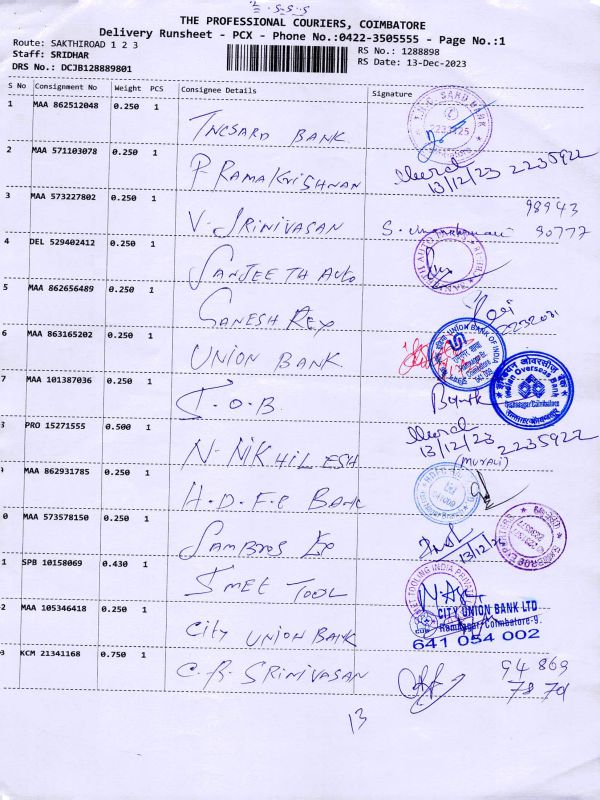 THE PROFESSIONAL COURIERS, COIMBATORE
Delivery Runsheet - PCX - Phone No.:0422-3505555 - Page No.:1
Route: SAKTHIROAD 1 2 3
RS No.: 1288898
Staff: SRIDHAR
RS Date: 13-Dec-2023
DRS No.: DCJB128889801
S No Consignment No Weight PCS Consignee Details Signature
1 MAA 862512048 0.250 1 TNCSARD BANK
2 MAA 571103078 0.250 1 P RAMAKRISHNAN 13/12/23 2235922
3 MAA 573227802 0.250 1 V. SRINIVASAN 98943
90777
4 DEL 529402412 0.250 1 SANJEETH AUTO
5 MAA 862656489 0.250 1 GANESH REX
6 MAA 863165202 0.250 1 UNION BANK
UNION BANK OF INDIA
7 MAA 101387036 0.250 1 I.O.B
इंडियन ओवरसीज़ बैंक
Indian Overseas Bank
Ramnagar Coimbatore
PRO 15271555 0.500 1 N. NIKHILESH 13/12/23 2235922
(MURALI)
MAA 862931785 0.250 1 H.D.F.C BANK
0 MAA 573578150 0.250 1 SAMBROS EXP 13/12/23
1 SPB 10158069 0.430 1 SMET TOOL
2 MAA 105346418 0.250 1 CITY UNION BANK
CITY UNION BANK LTD
Ramnagar-Coimbatore-9.
641 054 002
KCM 21341168 0.750 1 C.B. SRINIVASAN 94869
13